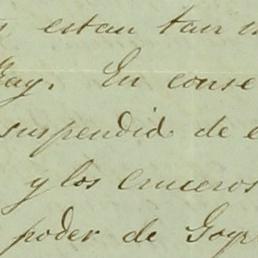 estan tan
Gay. En conse
suspendid de e
y los cruceros
poder de Goy